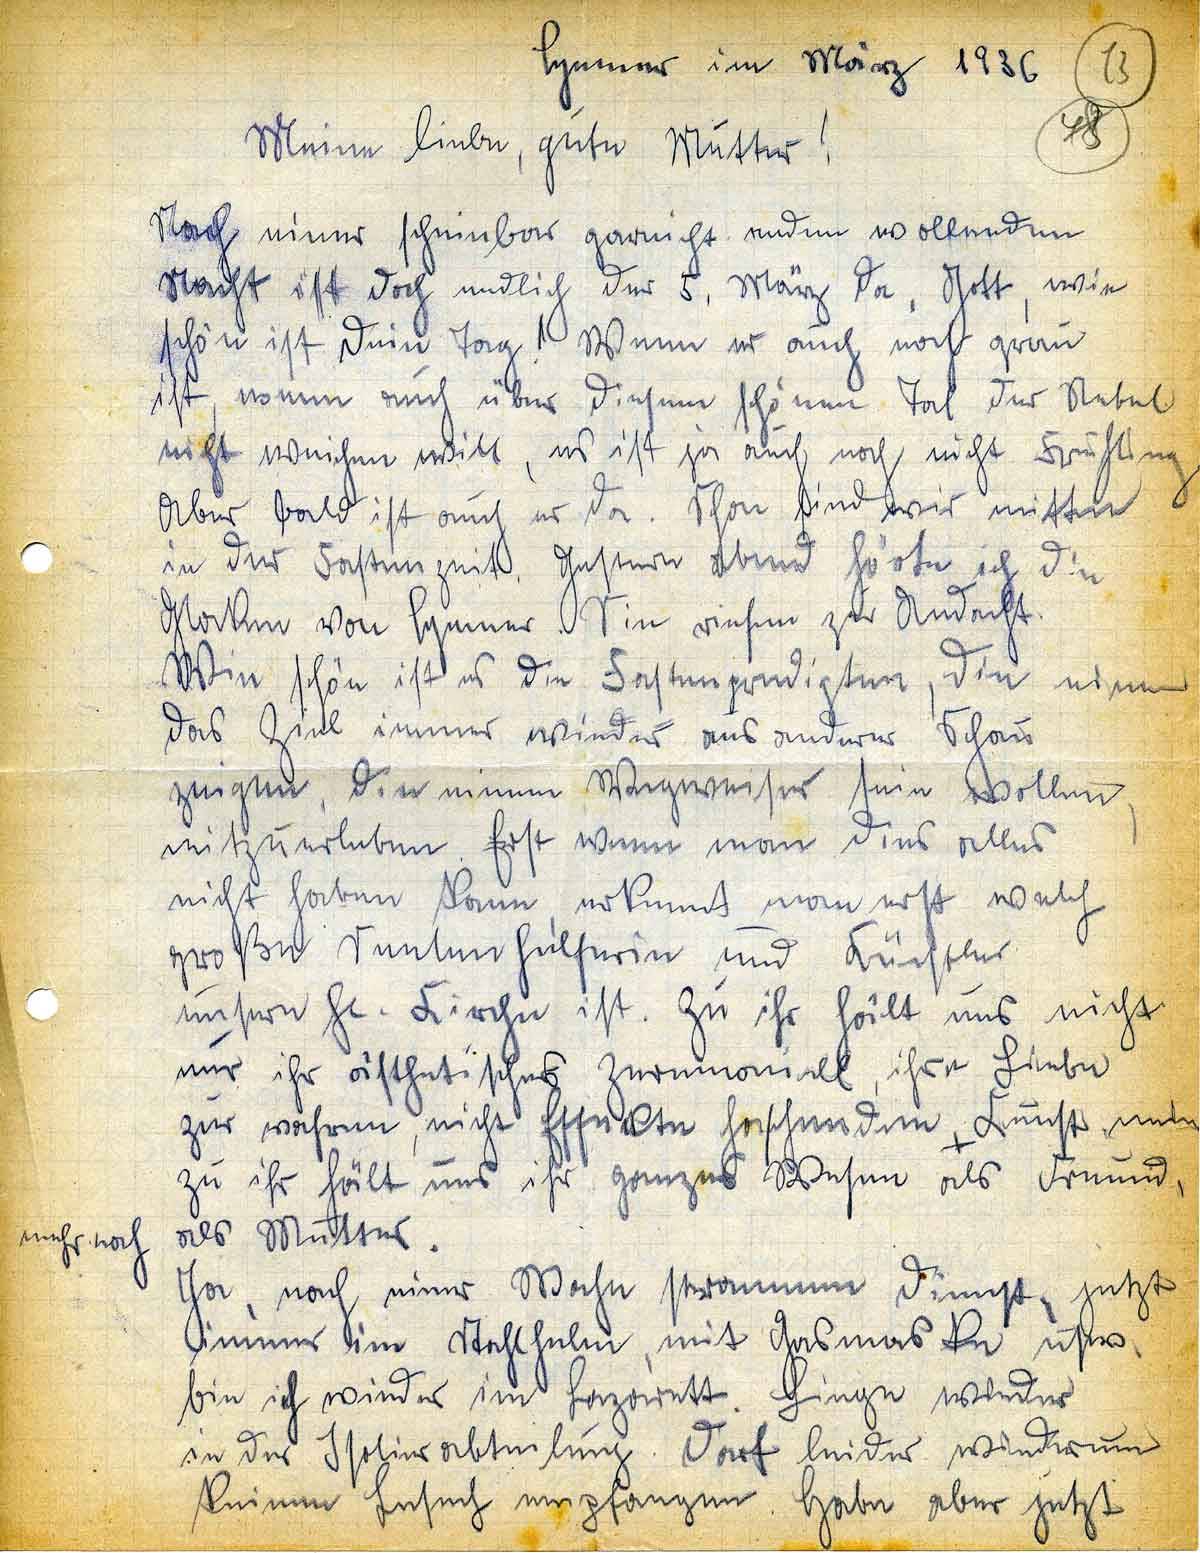 Hemer im März 1936
13
48
Meine liebe, gute Mutter!
Nach einer scheinbar garnicht enden wollenden
Nacht ist doch endlich der 5. März da, Gott, wie
schön ist Dein Tag! Wenn er auch noch grau
ist, wenn auch über diesem schönen Tal der Nebel
nicht weichen will, es ist ja auch noch nicht Frühling
Aber bald ist auch er da. Schon sind wir mitten
in der Fastenzeit. Gestern abend hörte ich die
Glocken von Hemer. Sie riefen zur Andacht.
Wie schön ist es die Fastenpredigten, die einem
das Ziel immer wieder aus anderer Schau
zeigen, die einem Wegweiser sein wollen,
mitzuerleben. Erst wenn man dies alles
nicht haben kann, erkennt man erst welch
große Seelenhelferin und Künstler
unsere hl. Kirche ist. Zu ihr hält uns nicht
nur ihr ästhetisches Zeremoniell, ihre Liebe
zur wahren, nicht Effekte haschenden Kunst, nein
zu ihr hält uns ihr ganzes Wesen als Freund,
mehr noch als Mutter.
Ja, nach einer Woche strammem Dienst, jetzt
immer im Stahlhelm, mit Gasmaske usw.
bin ich wieder im Lazarett. Liege wieder
in der Isolierabteilung. Darf leider wiederum
keinen Besuch empfangen. Habe aber jetzt